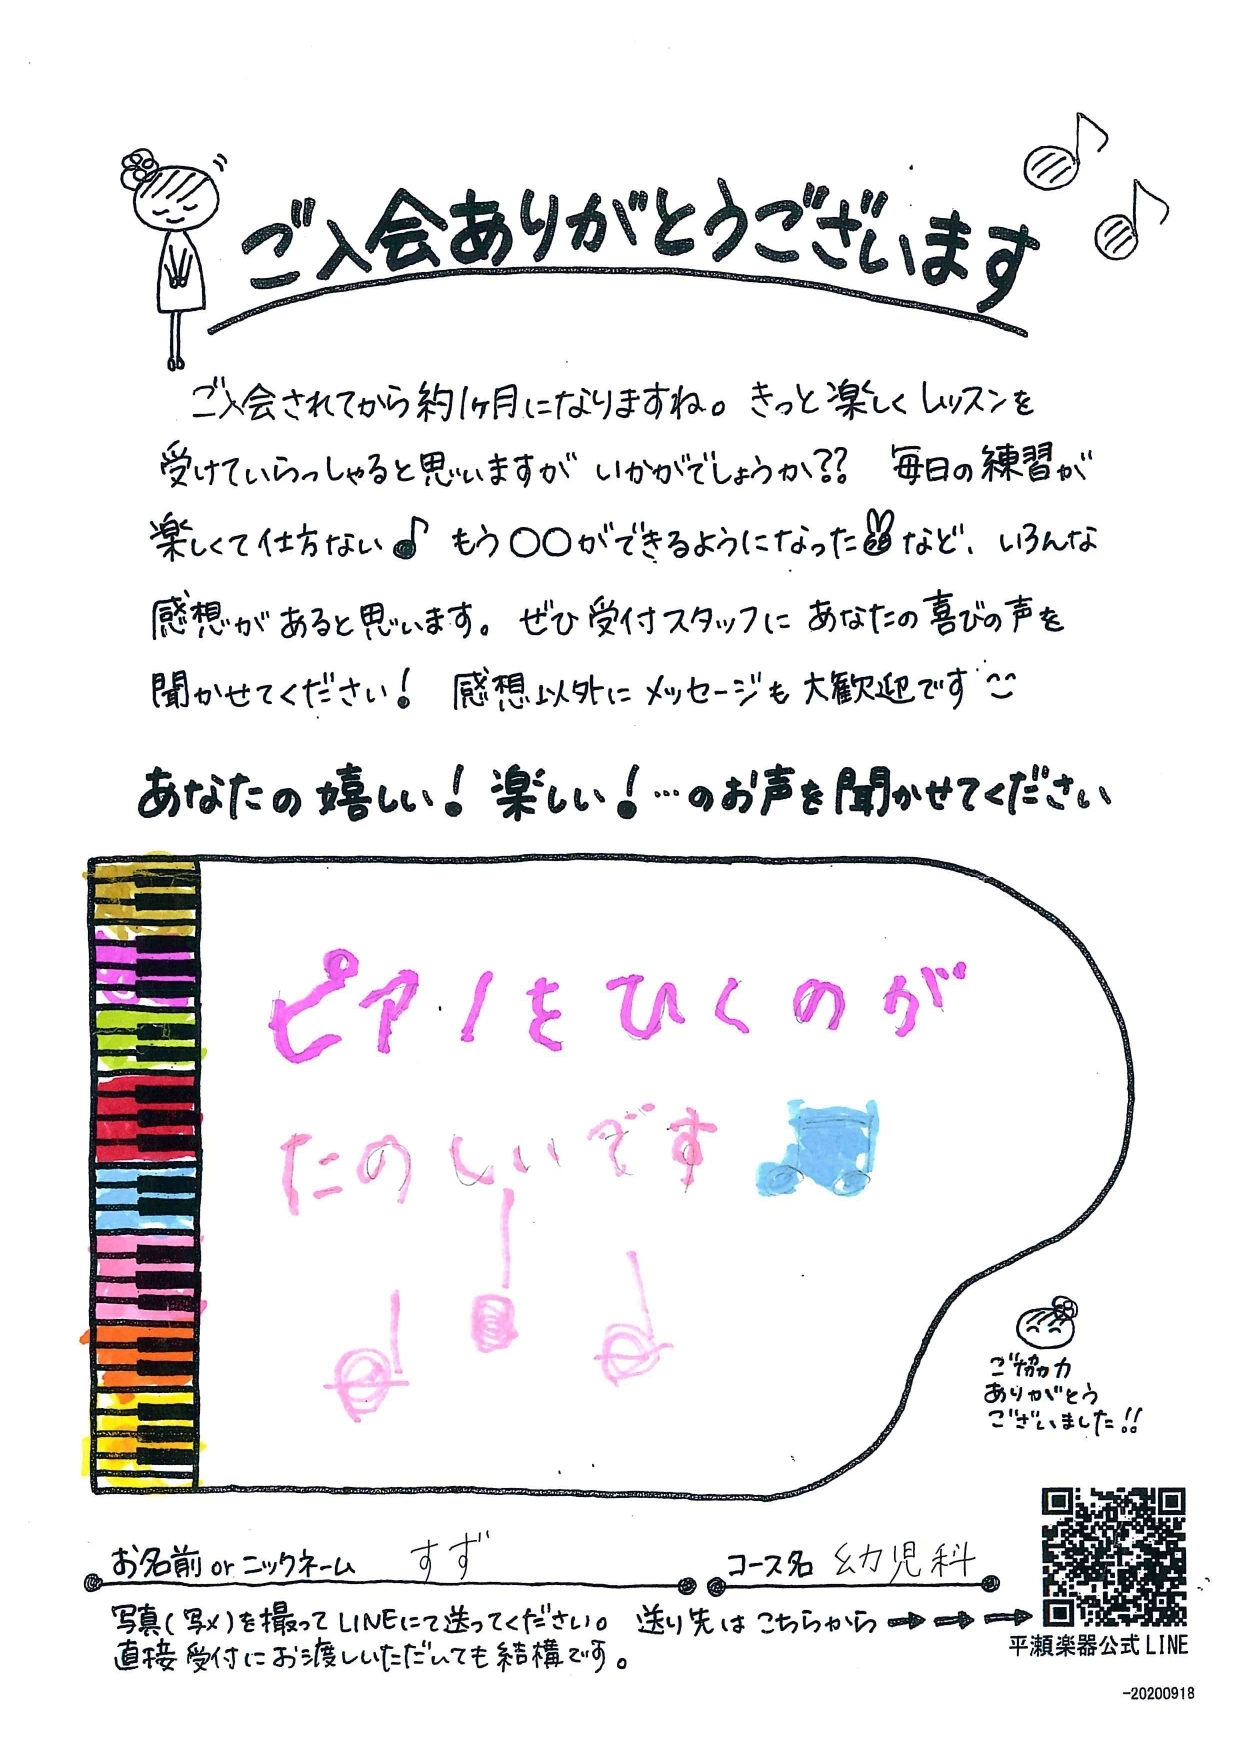 ご入会ありがとうございます
ご入会されてから約1ヶ月になりますね。きっと楽しくレッスンを
受けていらっしゃると思いますが いかがでしょうか?? 毎日の練習が
楽しくて仕方ない♪ もう〇〇ができるようになった など、いろんな
感想があると思います。ぜひ受付スタッフに あなたの喜びの声を
聞かせてください! 感想以外に メッセージも 大歓迎です
あなたの嬉しい!楽しい!…のお声を聞かせてください
ピアノをひくのが
たのしいです
ご協力
ありがとう
ございました!!
お名前 or ニックネーム すず
コース名 幼児科
写真(写メ)を撮ってLINEにて送ってください。 送り先は こちらから
直接 受付に お渡しいただいても 結構です。
平瀬楽器公式LINE
-20200918